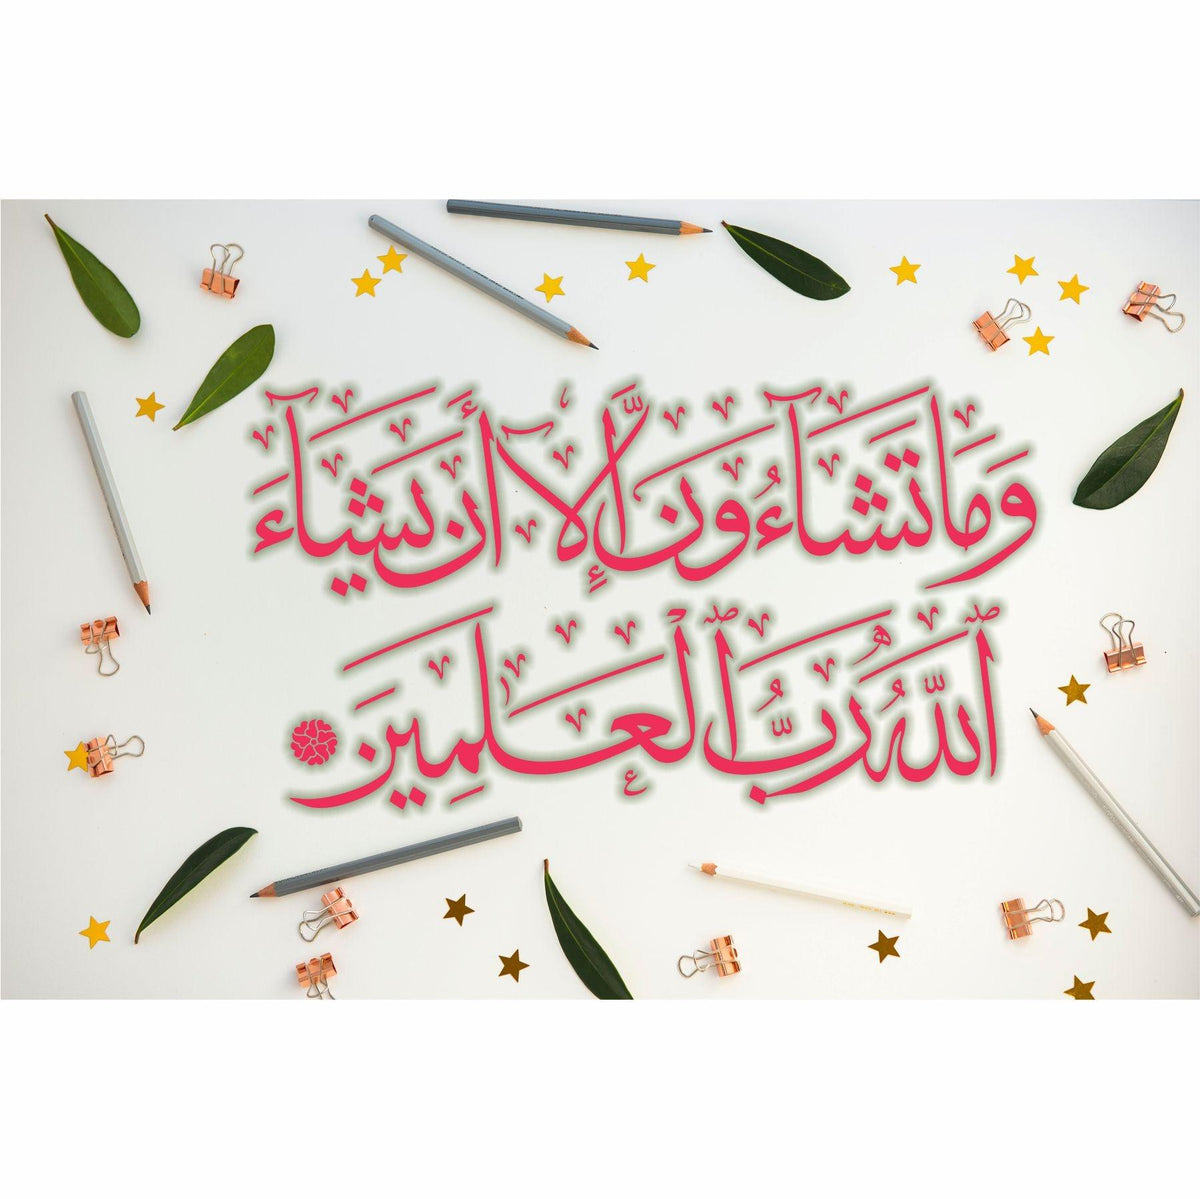 وَمَا تَشَآءُونَ إِلَّآ أَن يَشَآءَ
ٱللَّهُ رَبُّ ٱلْعَٰلَمِينَ